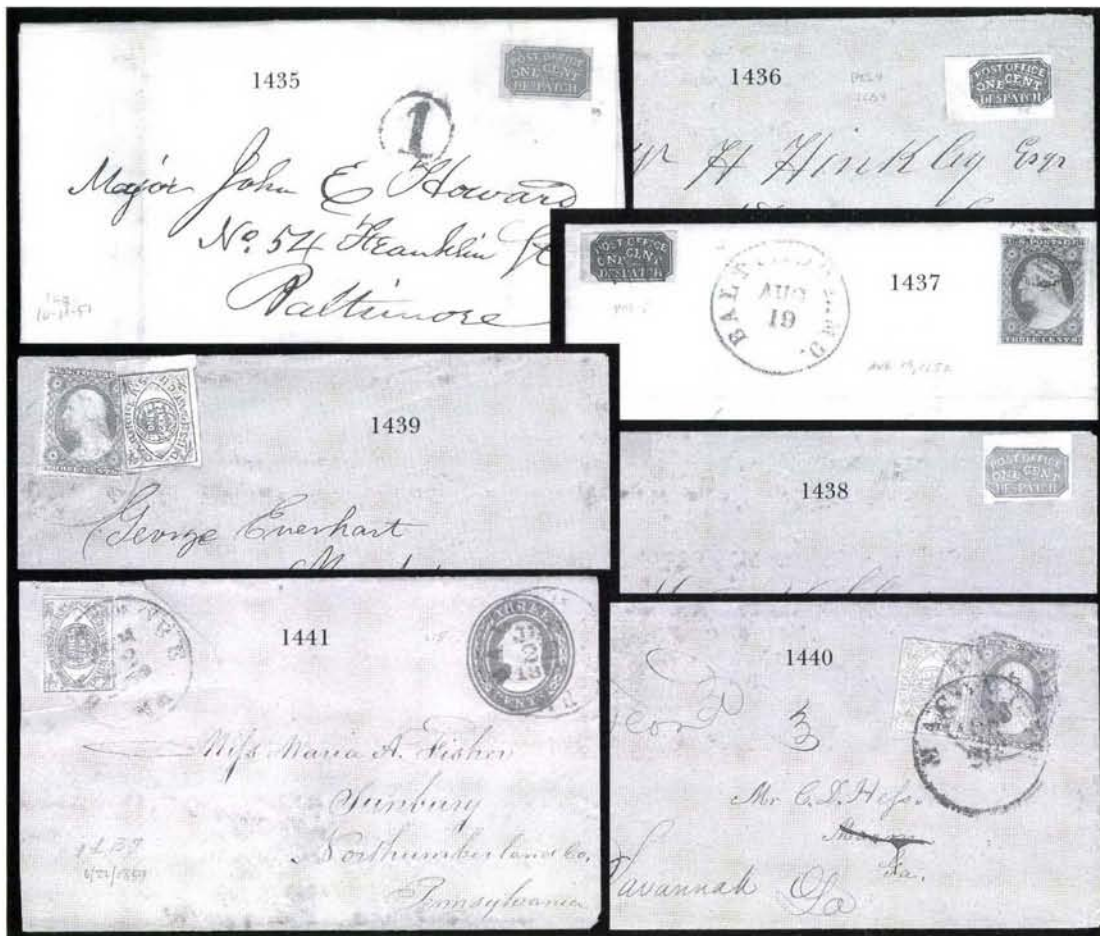 1435
POST OFFICE
ONE CENT
DESPATCH
1
Major John E Howard
No. 54 Franklin St
Baltimore
1436
POST OFFICE
ONE CENT
DESPATCH
H Hinkley Esqr
POST OFFICE
ONE CENT
DESPATCH
BALTIMORE Md.
AUG
19
1437
U.S. POSTAGE
THREE CENTS
1439
THREE CENTS
George Everhart
1438
POST OFFICE
ONE CENT
DESPATCH
1441
THREE
CENTS
Miss Maria A. Fisher
Sunbury
Northumberland Co.
Pennsylvania
1440
3
Mr. C. D. Hess.
Savannah Ga